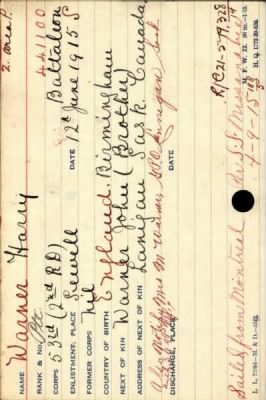 2. Mar.
NAME Warner Harry
441100
RANK & No. Pte.
CORPS 53rd (2nd RD) Battalion
ENLISTMENT, PLACE Sewell DATE 12th June 1915
FORMER CORPS Nil
COUNTRY OF BIRTH England. Birmingham
NEXT OF KIN Warner John (Brother)
ADDRESS OF NEXT OF KIN Lanigan Sask. Canada
Mrs M Warner Lanigan Sask
DISCHARGE, PLACE DATE
R/C 21-5-19, 328
Sailed from Montreal Per S.S. Missanabie
4-9-15
M. F. W. 22.
H. Q. 1772-39-839.